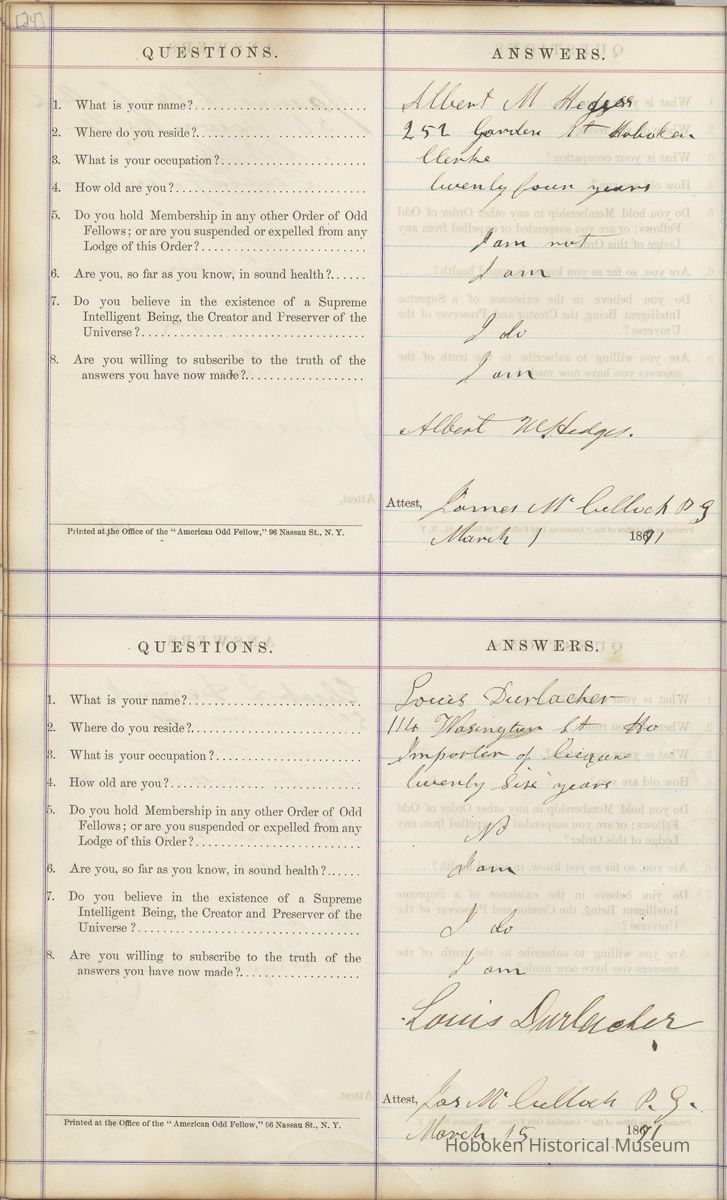 [24]
QUESTIONS. ANSWERS.
1. What is your name? Albert M Hedges
2. Where do you reside? 252 Garden St Hoboken
3. What is your occupation? Clerke
4. How old are you? twenty four years
5. Do you hold Membership in any other Order of Odd
Fellows; or are you suspended or expelled from any
Lodge of this Order? I am not
6. Are you, so far as you know, in sound health? I am
7. Do you believe in the existence of a Supreme
Intelligent Being, the Creator and Preserver of the
Universe? I do
8. Are you willing to subscribe to the truth of the
answers you have now made? I am
Albert M Hedges.
Attest, James Mc Culloch P G
Printed at the Office of the "American Odd Fellow," 96 Nassau St., N. Y.
March 1 1871
QUESTIONS. ANSWERS.
1. What is your name? Louis Durlacher
2. Where do you reside? 114 Wasington St Ho
3. What is your occupation? Importer of
4. How old are you? twenty Six years
5. Do you hold Membership in any other Order of Odd
Fellows; or are you suspended or expelled from any
Lodge of this Order? No
6. Are you, so far as you know, in sound health? I am
7. Do you believe in the existence of a Supreme
Intelligent Being, the Creator and Preserver of the
Universe? I do
8. Are you willing to subscribe to the truth of the
answers you have now made? I am
Louis Durlacher
Attest, Jas Mc Culloch P. G.
Printed at the Office of the "American Odd Fellow," 96 Nassau St., N. Y.
March 15 1871
Hoboken Historical Museum